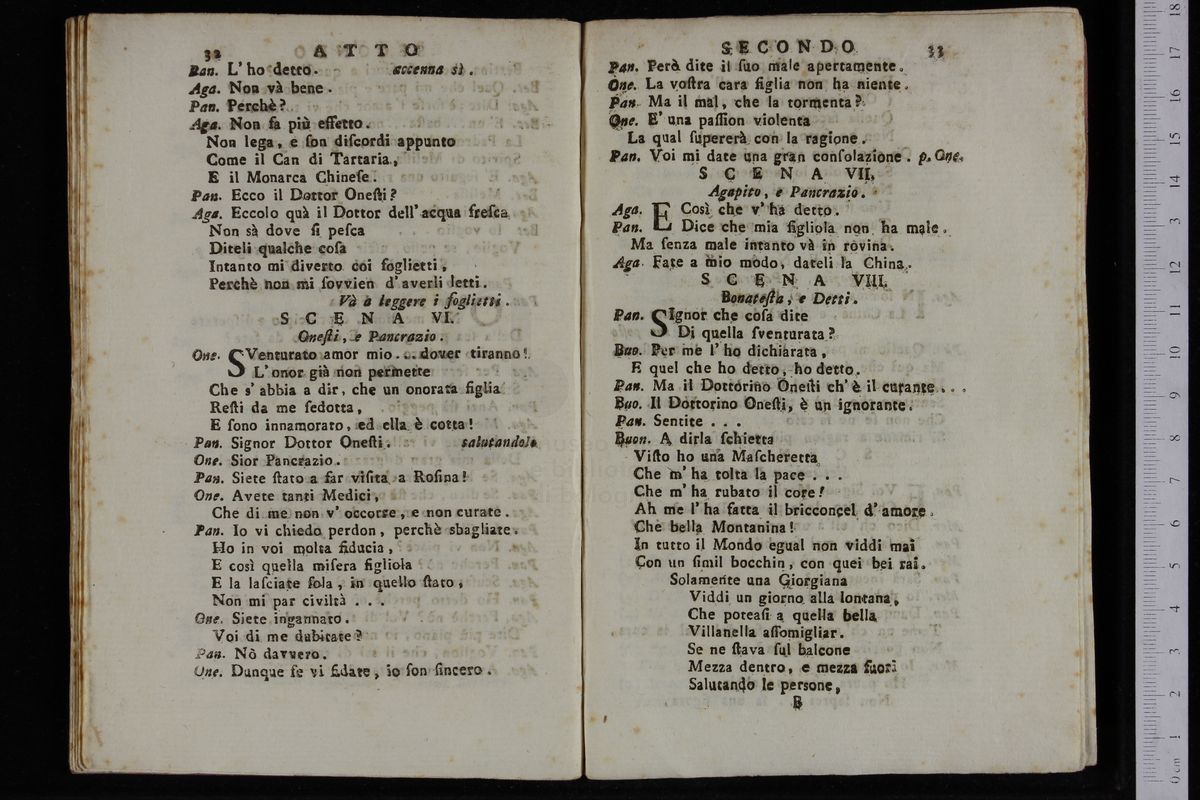 32 ATTO
Pan. L' ho detto. accenna sì.
Aga. Non và bene.
Pan. Perchè?
Aga. Non fa più effetto.
Non lega, e ſon diſcordi appunto
Come il Can di Tartaria,
E il Monarca Chineſe.
Pan. Ecco il Dottor Oneſti?
Aga. Eccolo quà il Dottor dell' acqua freſca
Non sà dove ſi peſca
Diteli qualche coſa
Intanto mi diverto coi foglietti,
Perchè non mi ſovvien d' averli letti.
Và a leggere i foglietti.
SCENA VI.
Oneſti, e Pancrazio.
One. SVenturato amor mio... dover tiranno!
L' onor già non permette
Che s' abbia a dir, che un onorata figlia
Reſti da me ſedotta,
E ſono innamorato, ed ella è cotta!
Pan. Signor Dottor Oneſti. salutandolo
One. Sior Pancrazio.
Pan. Siete ſtato a far viſita a Roſina!
One. Avete tanti Medici,
Che di me non v' occorre, e non curate.
Pan. Io vi chiedo perdon, perchè sbagliate.
Ho in voi molta fiducia,
E così quella miſera figliola
E la laſciate ſola, in quello ſtato,
Non mi par civiltà...
One. Siete ingannato.
Voi di me dubitate?
Pan. Nò davvero.
One. Dunque ſe vi fidate, io ſon ſincero.
SECONDO 33
Pan. Però dite il ſuo male apertamente.
One. La voſtra cara figlia non ha niente.
Pan. Ma il mal, che la tormenta?
One. E' una paſſion violenta
La qual ſupererà con la ragione.
Pan. Voi mi date una gran conſolazione. p. One.
SCENA VII.
Agapito, e Pancrazio.
Aga. E Così che v' ha detto.
Pan. Dice che mia figliola non ha male.
Ma ſenza male intanto và in rovina.
Aga. Fate a mio modo, dateli la China.
SCENA VIII.
Bonateſta, e Detti.
Pan. SIgnor che coſa dite
Di quella ſventurata?
Buo. Per me l' ho dichiarata,
E quel che ho detto, ho detto.
Pan. Ma il Dottorino Oneſti ch' è il curante...
Buo. Il Dottorino Oneſti, è un ignorante.
Pan. Sentite...
Buon. A dirla ſchietta
Viſto ho una Maſcheretta
Che m' ha tolta la pace...
Che m' ha rubato il core!
Ah me l' ha fatta il bricconcel d' amore.
Che bella Montanina!
In tutto il Mondo egual non viddi mai
Con un ſimil bocchin, con quei bei rai.
Solamente una Giorgiana
Viddi un giorno alla lontana,
Che poteaſi a quella bella
Villanella aſſomigliar.
Se ne ſtava ſul balcone
Mezza dentro, e mezza fuori
Salutando le perſone,
B